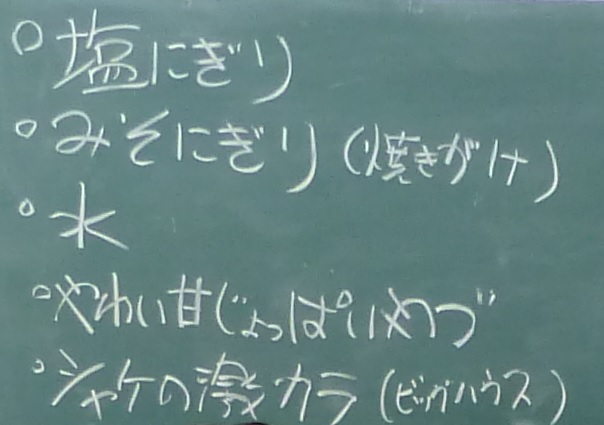 ○塩にぎり
○みそにぎり(焼きがけ)
○水
○やわい甘じょっぱいめづ
○シャケの激カラ(ビッグハウス)